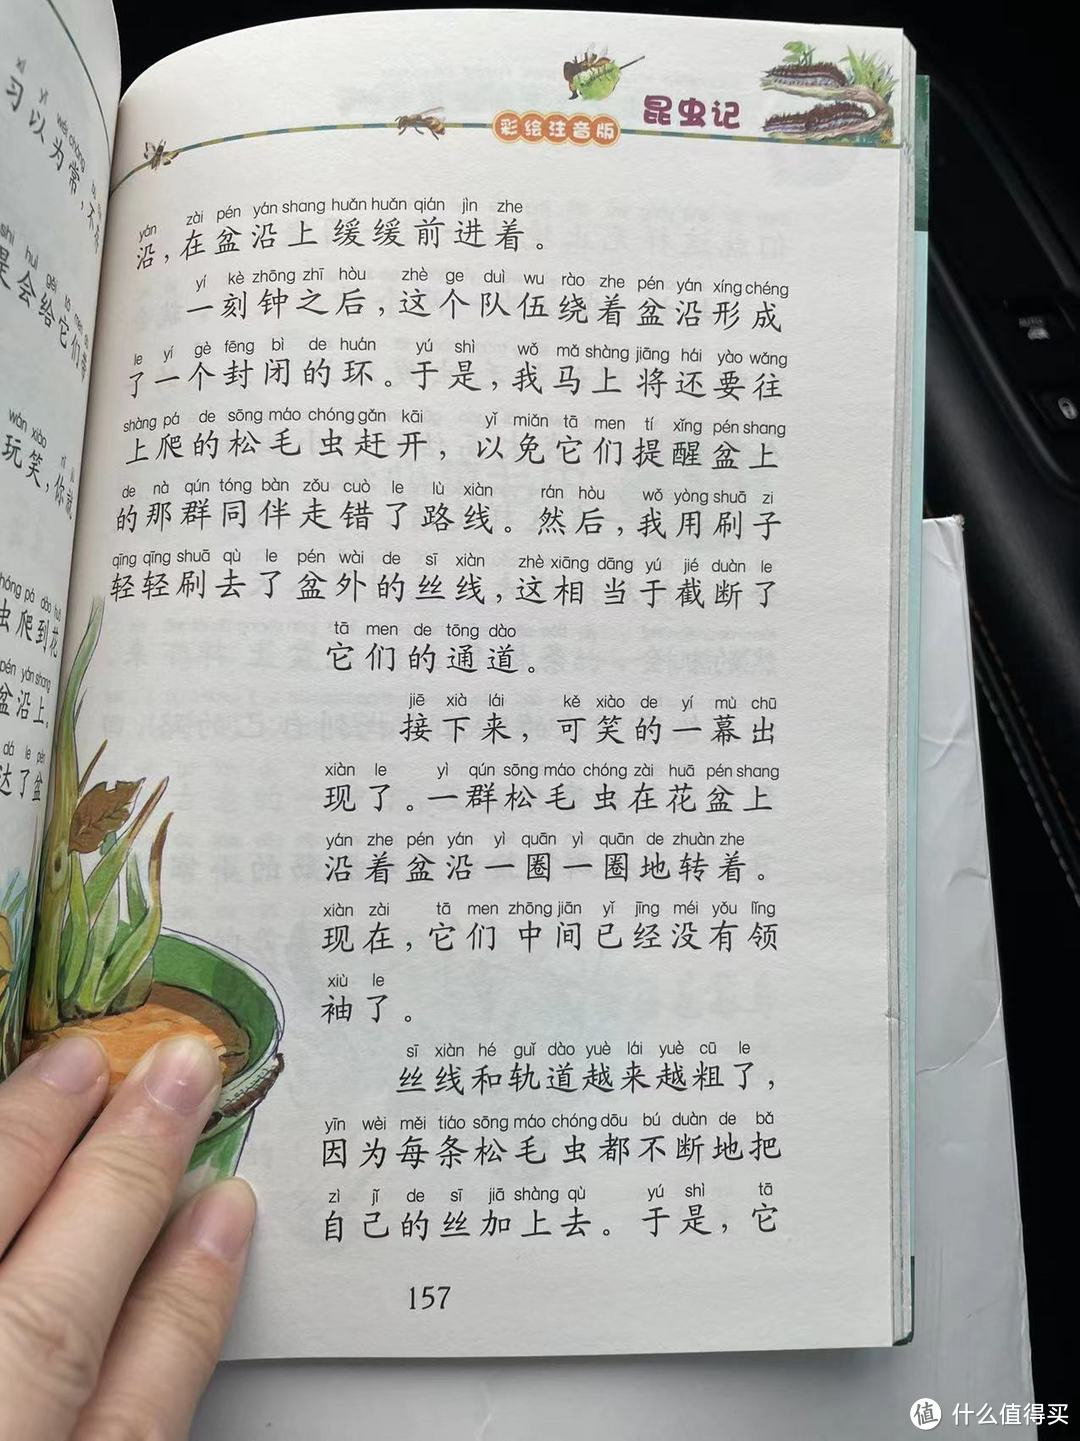 昆虫记
彩绘注音版
yán zài pén yán shang huǎn huǎn qián jìn zhe
沿，在盆沿上缓缓前进着。
yí kè zhōng zhī hòu zhè ge duì wu rào zhe pén yán xíng chéng
一刻钟之后，这个队伍绕着盆沿形成
le yí gè fēng bì de huán yú shì wǒ mǎ shàng jiāng hái yào wǎng
了一个封闭的环。于是，我马上将还要往
shàng pá de sōng máo chóng gǎn kāi yǐ miǎn tā men tí xǐng pén shang
上爬的松毛虫赶开，以免它们提醒盆上
de nà qún tóng bàn zǒu cuò le lù xiàn rán hòu wǒ yòng shuā zi
的那群同伴走错了路线。然后，我用刷子
qīng qīng shuā qù le pén wài de sī xiàn zhè xiāng dāng yú jié duàn le
轻轻刷去了盆外的丝线，这相当于截断了
tā men de tōng dào
它们的通道。
jiē xià lái kě xiào de yí mù chū
接下来，可笑的一幕出
xiàn le yì qún sōng máo chóng zài huā pén shang
现了。一群松毛虫在花盆上
yán zhe pén yán yì quān yì quān de zhuàn zhe
沿着盆沿一圈一圈地转着。
xiàn zài tā men zhōng jiān yǐ jīng méi yǒu lǐng
现在，它们中间已经没有领
xiù le
袖了。
sī xiàn hé guǐ dào yuè lái yuè cū le
丝线和轨道越来越粗了，
yīn wèi měi tiáo sōng máo chóng dōu bú duàn de bǎ
因为每条松毛虫都不断地把
zì jǐ de sī jiā shàng qù yú shì tā
自己的丝加上去。于是，它
157
wéi cháng
习以为常，不
shì huì gěi
会给它们带
wán xiào
玩笑，你就
chóng pá dào huā
虫爬到花
pén yán shang
盆沿上。
dá le pén
达了盆
值 什么值得买